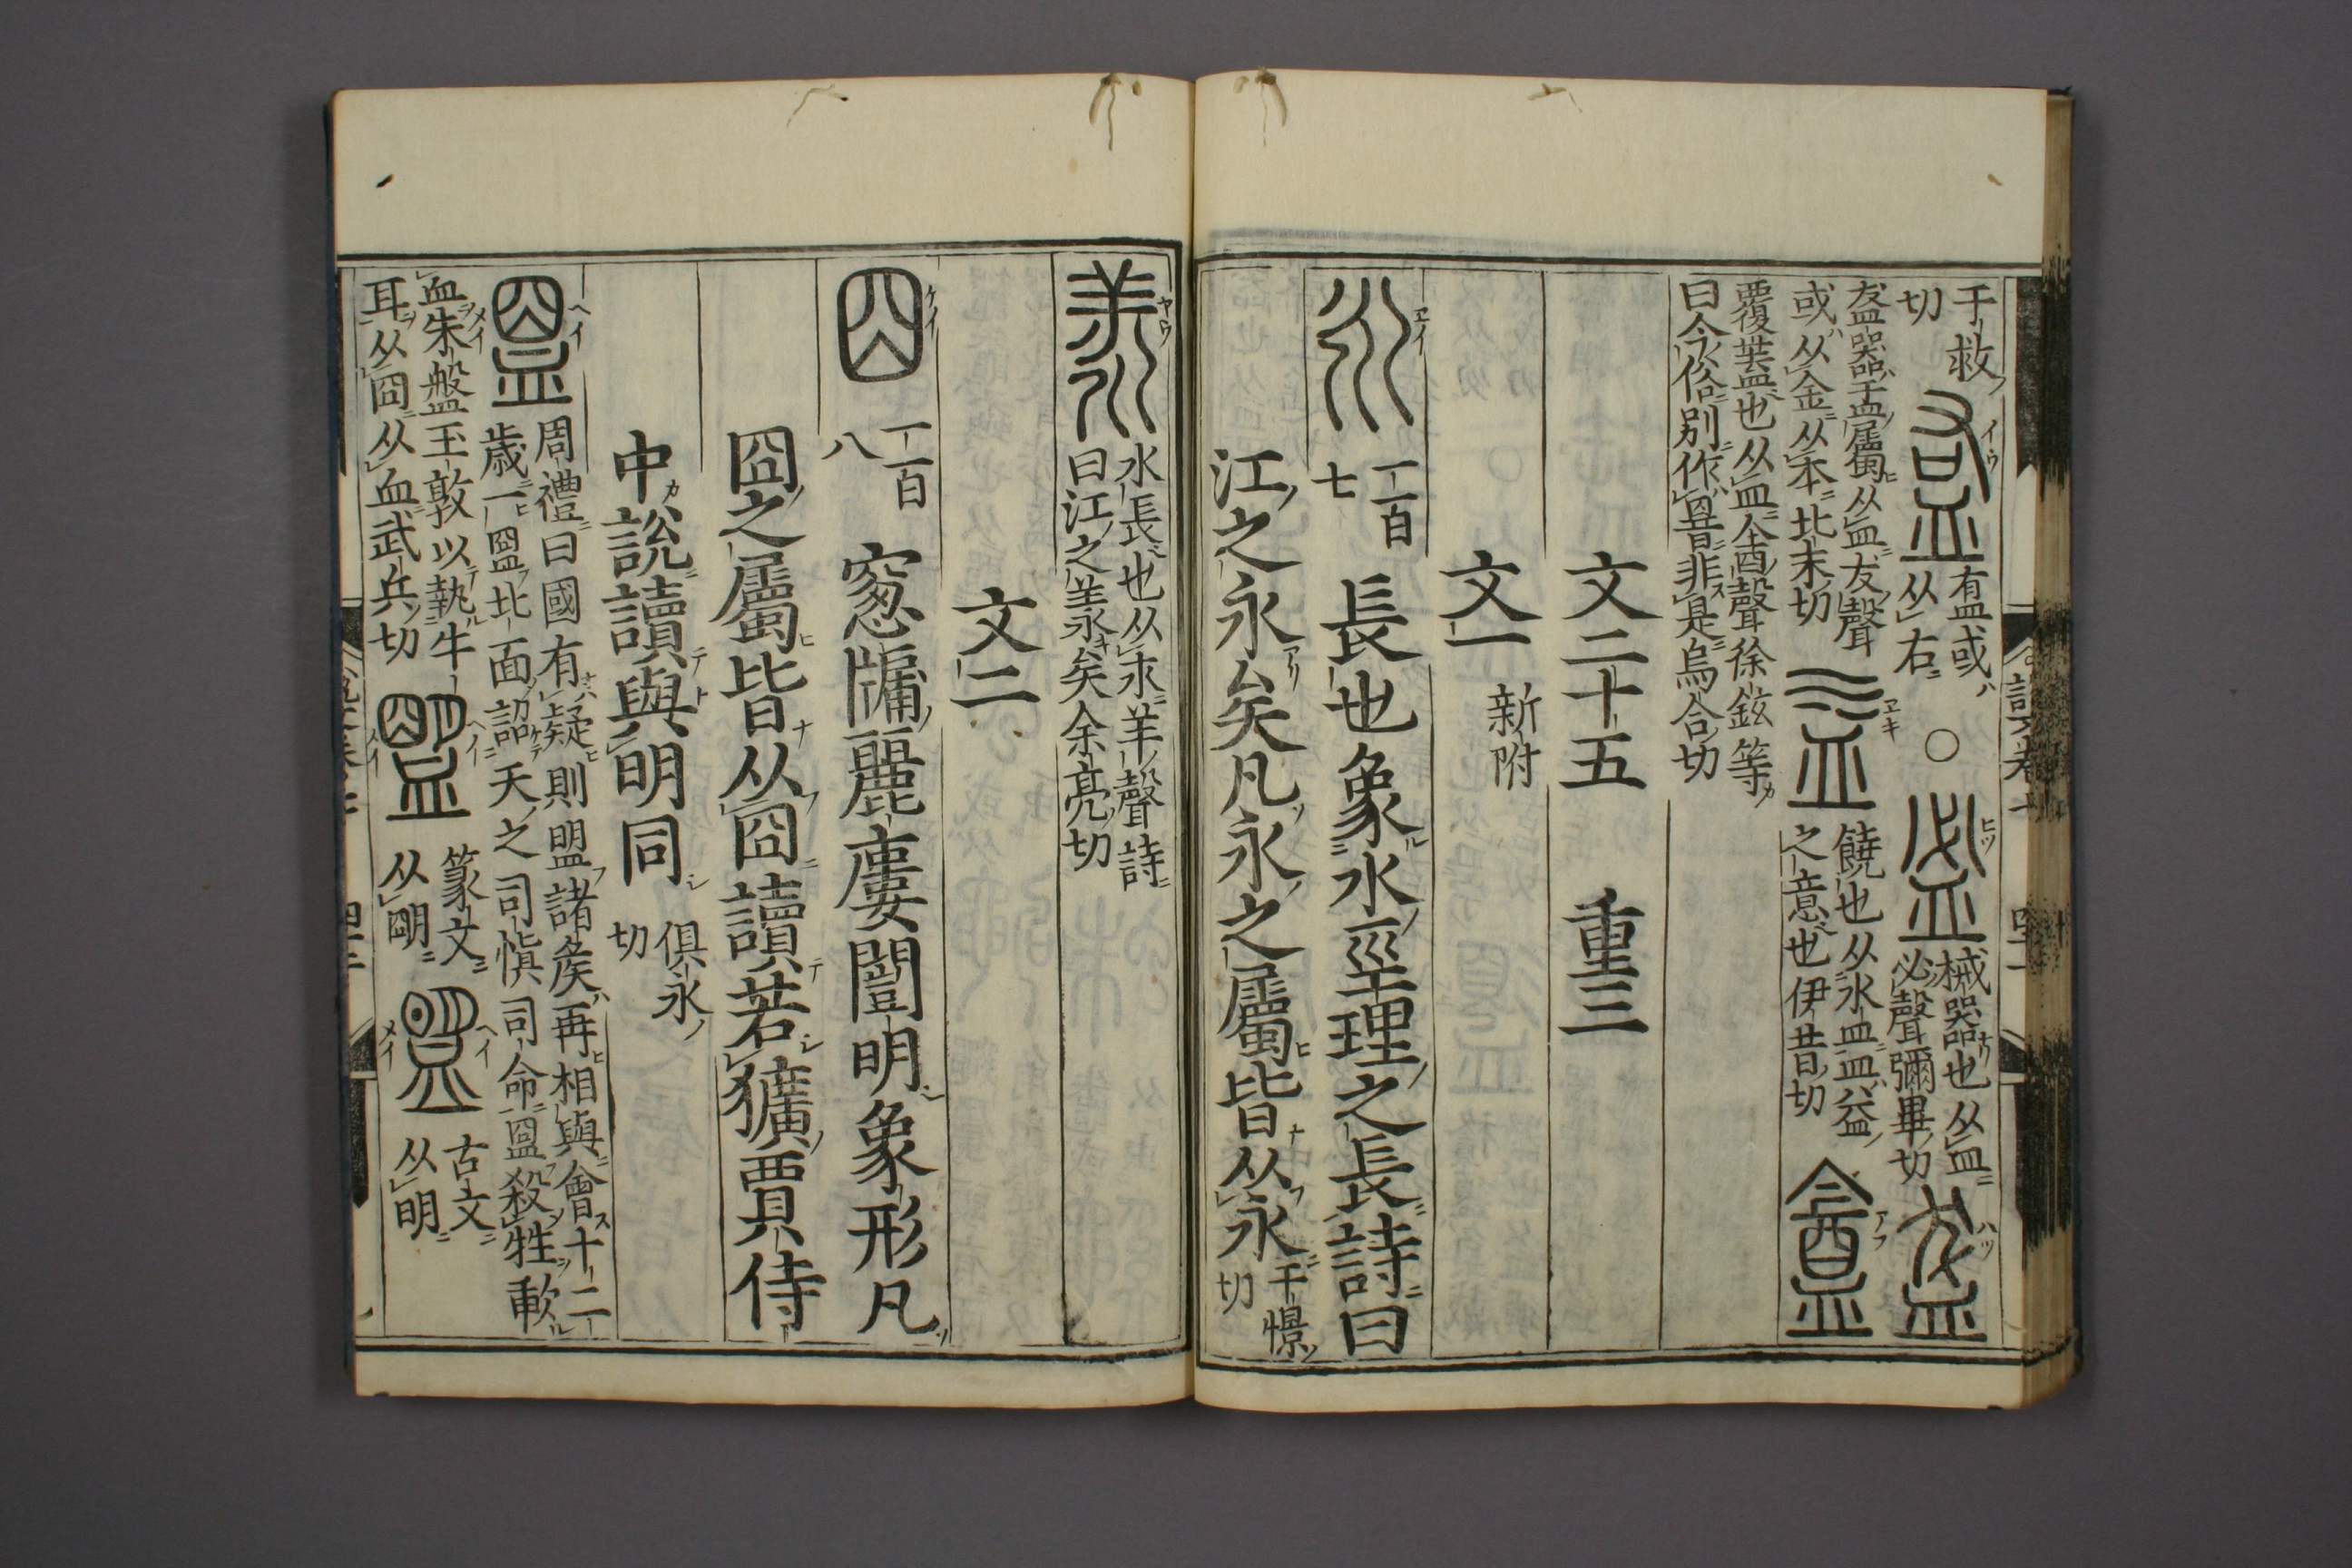 于救
切
有皿或
从右
○
械器也从皿
必聲彌畢切
盋器盂屬从皿犮聲
或从金从本北末切
饒也从水皿皿益
之意也伊昔切
覆葢也从皿酓聲徐鉉等
曰今俗別作罯非是烏合切
文二十五 重三
文一 新附
一百
七
長也象水巠理之長詩曰
江之永矣凡永之屬皆从永
于憬
切
水長也从永羊聲詩
曰江之羕矣余亮切
文二
一百
八
窻牖麗廔闓明象形凡
囧之屬皆从囧讀若獷賈侍
中說讀與明同
俱永
切
周禮曰國有疑則盟諸矦再相與會十二
歳一盟北面詔天之司慎司命盟殺牲歃
血朱盤玉敦以執牛
耳从囧从血武兵切
篆文
从朙
古文
从明